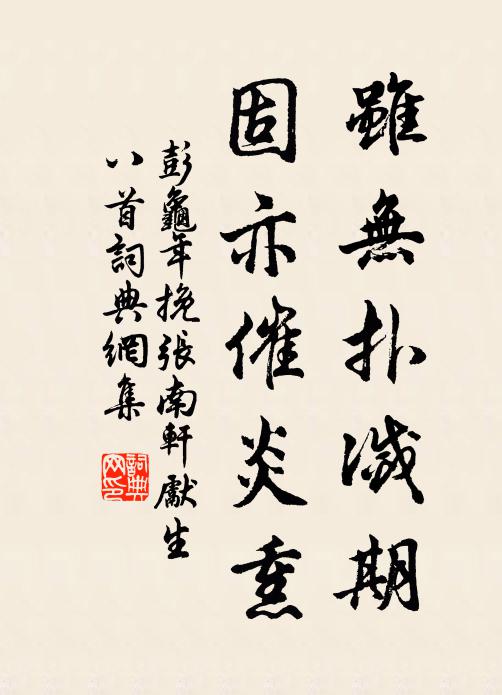 雖無扑滅期
固亦催炎熏
彭龜年挽張南軒獻生
八首詞典網集
詞典网印